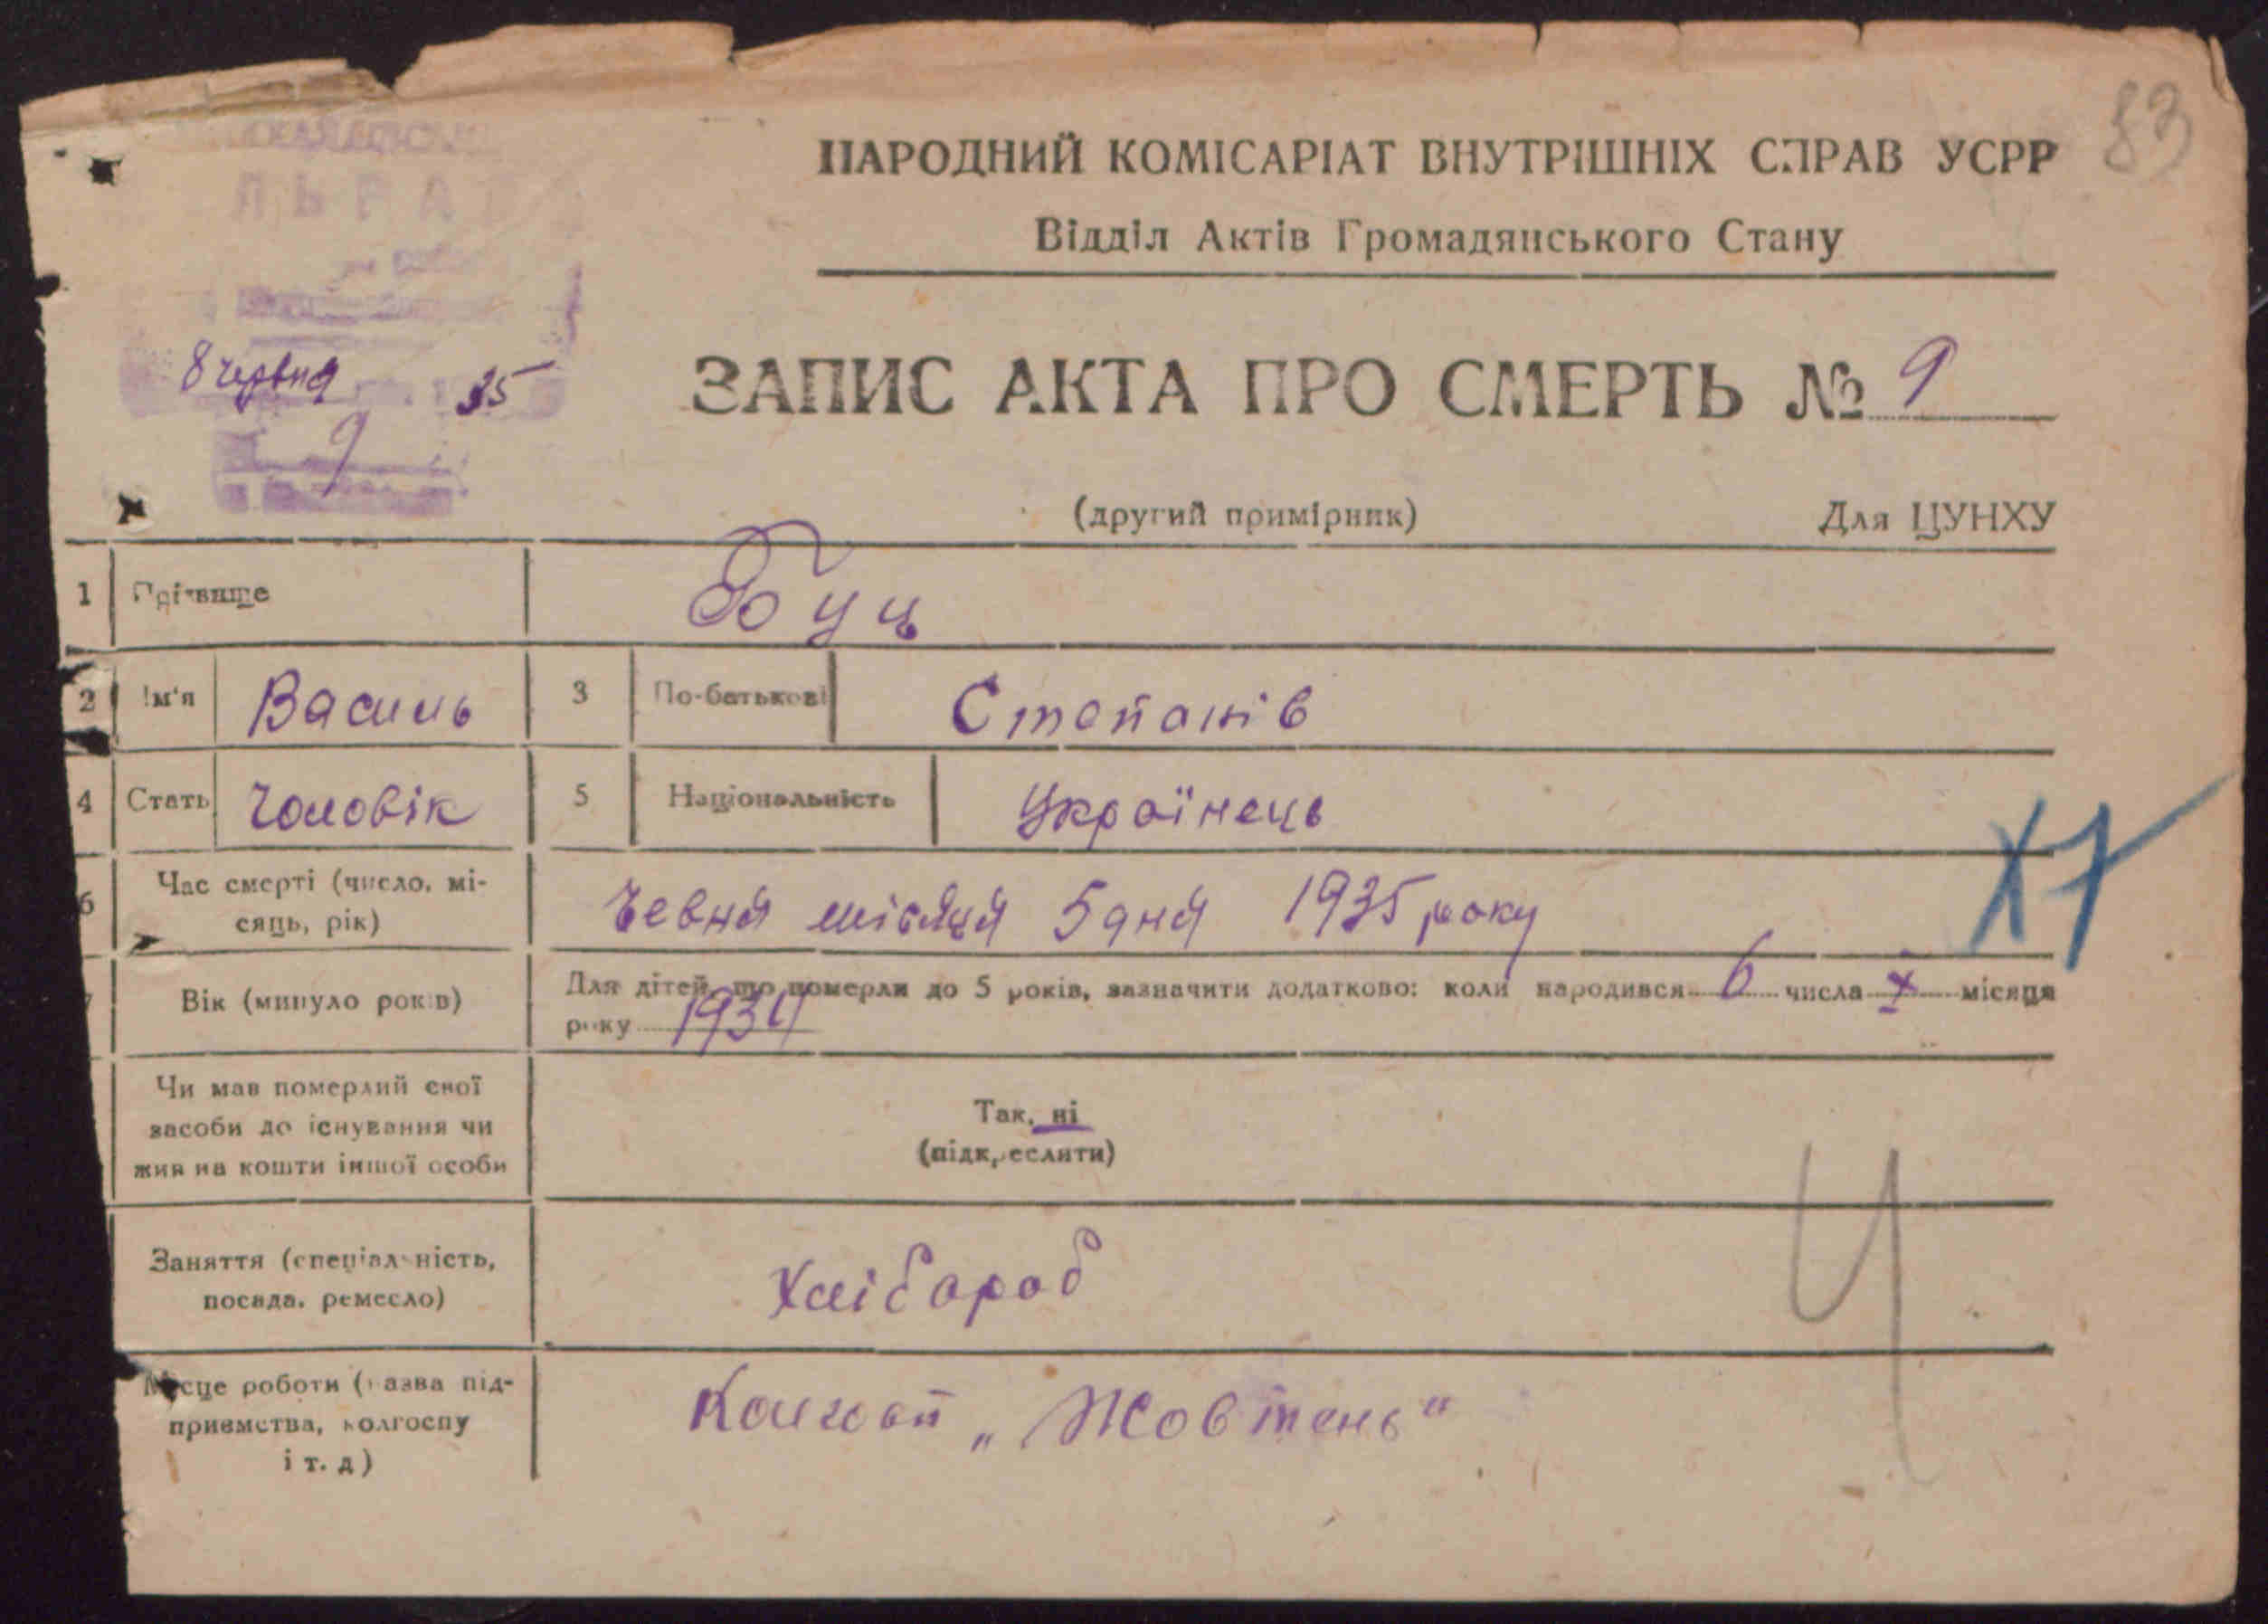 83
НАРОДНИЙ КОМІСАРІАТ ВНУТРІШНІХ СПРАВ УСРР
Відділ Актів Громадянського Стану
8 червня 35
9
ЗАПИС АКТА ПРО СМЕРТЬ № 9
(другий примірник) Для ЦУНХУ
1 Прізвище Буц
2 Ім'я Василь 3 По-батькові Степанів
4 Стать Чоловік 5 Національність Українець
6 Час смерті (число, мі-
сяць, рік) Чевня місяця 5 дня 1935 року
Х7
Вік (минуло років) Для дітей, що померли до 5 років, зазначити додатково: коли народився 6 числа X місяця
року 1934
Чи мав померлий свої
засоби до існування чи
жив на кошти іншої особи
Так, ні
(підкреслити)
Заняття (спеціальність,
посада, ремесло) Хлібароб
Місце роботи (назва під-
приємства, колгоспу
і т. д) Колгосп „Жовтень"